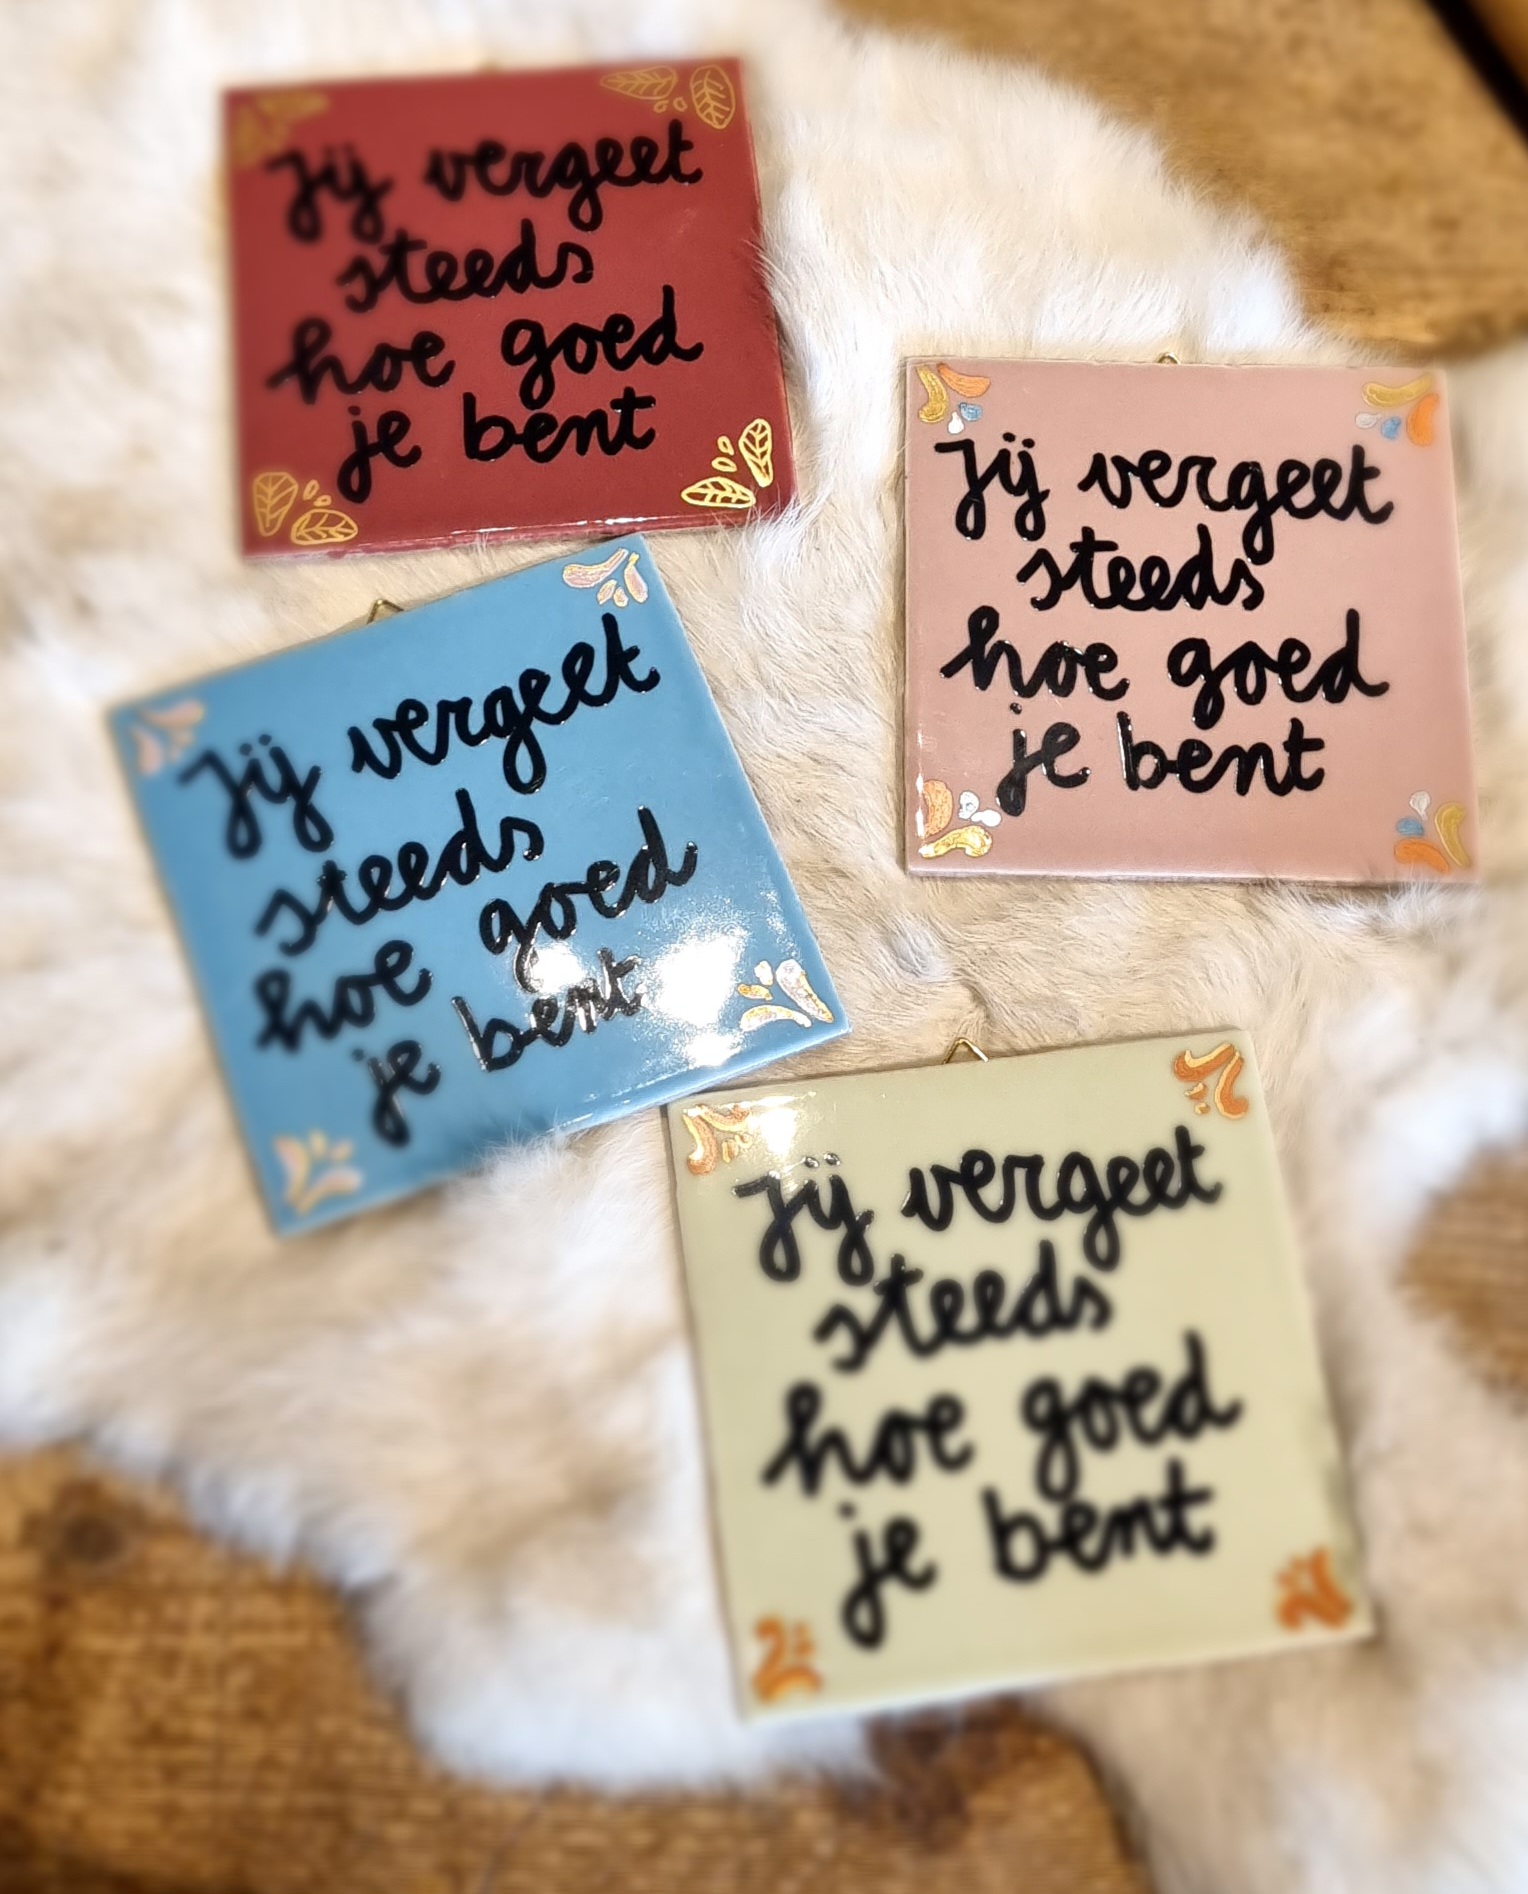 Jij vergeet
steeds
hoe goed
je bent
Jij vergeet
steeds
hoe goed
je bent
Jij vergeet
steeds
hoe goed
je bent
Jij vergeet
steeds
hoe goed
je bent